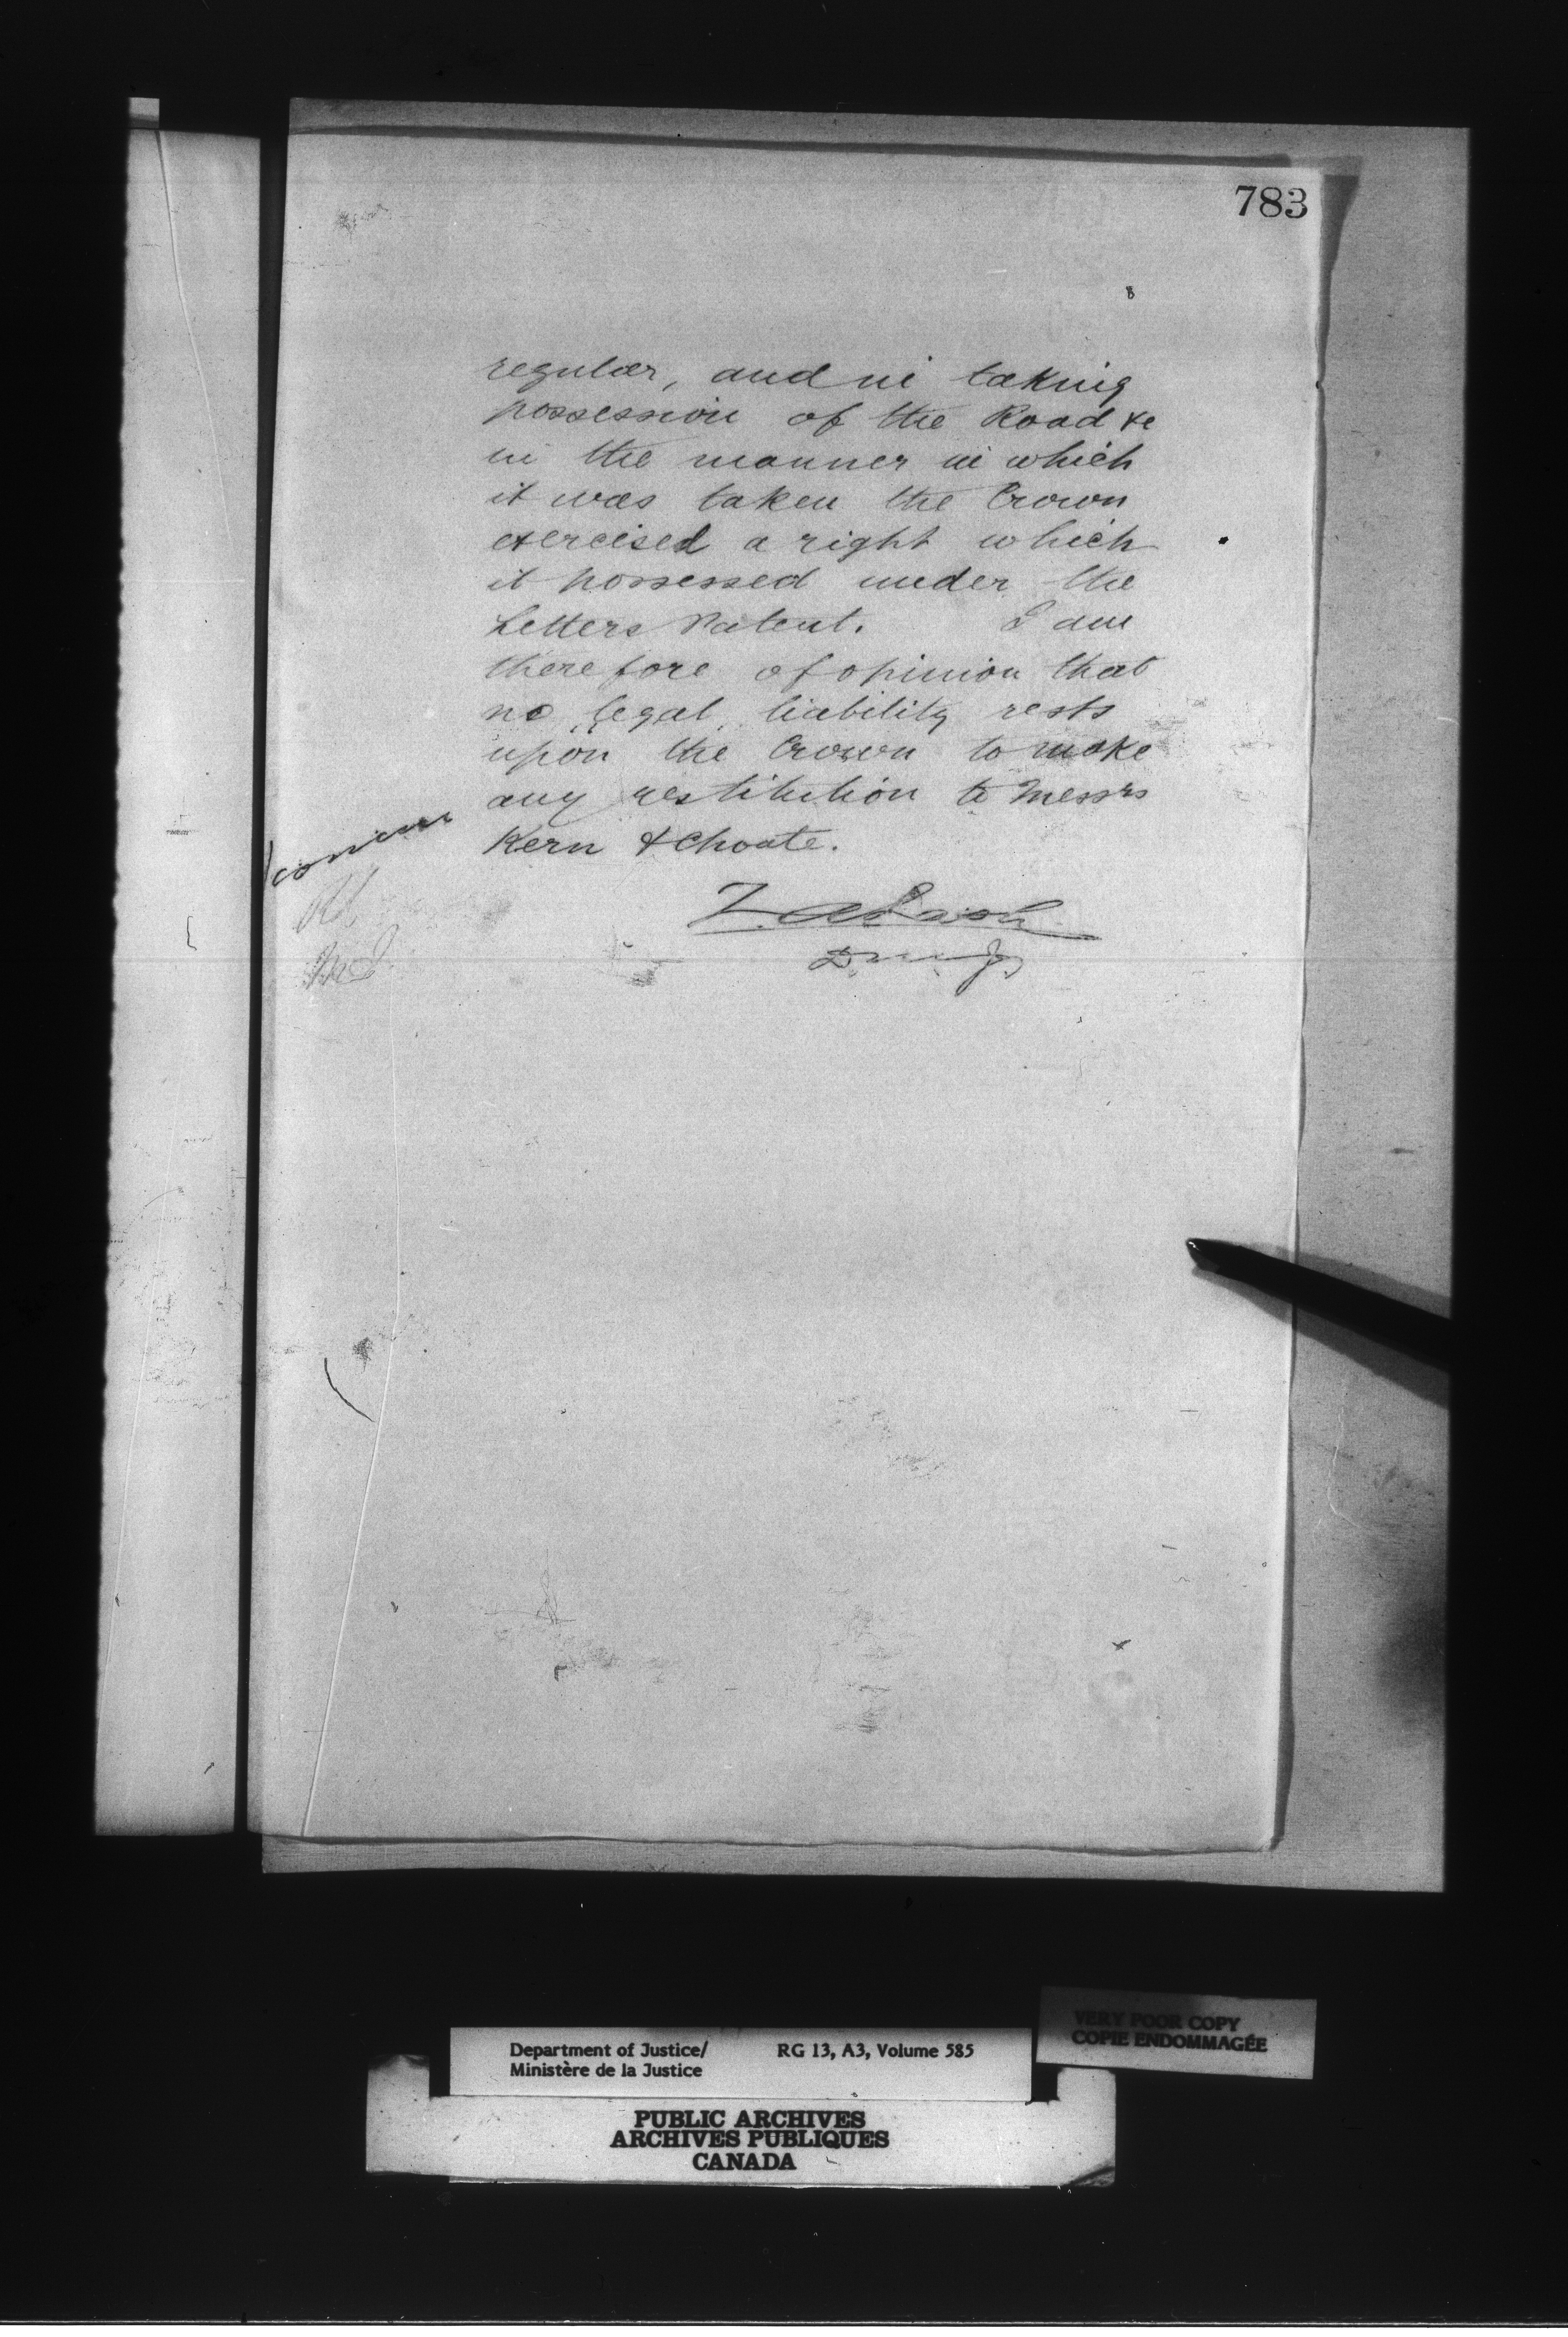 783
regular, and in taking
possession of the Road &c
in the manner in which
it was taken the Crown
exercised a right which
it possessed under the
Letters Patent. I am
therefore of opinion that
no legal liability rests
upon the Crown to make
any restitution to Messrs
Kern & Choate.
I concur
Z. A. Lash
D. M. J.
VERY POOR COPY
COPIE ENDOMMAGÉE
Department of Justice/ RG 13, A3, Volume 585
Ministère de la Justice
PUBLIC ARCHIVES
ARCHIVES PUBLIQUES
CANADA